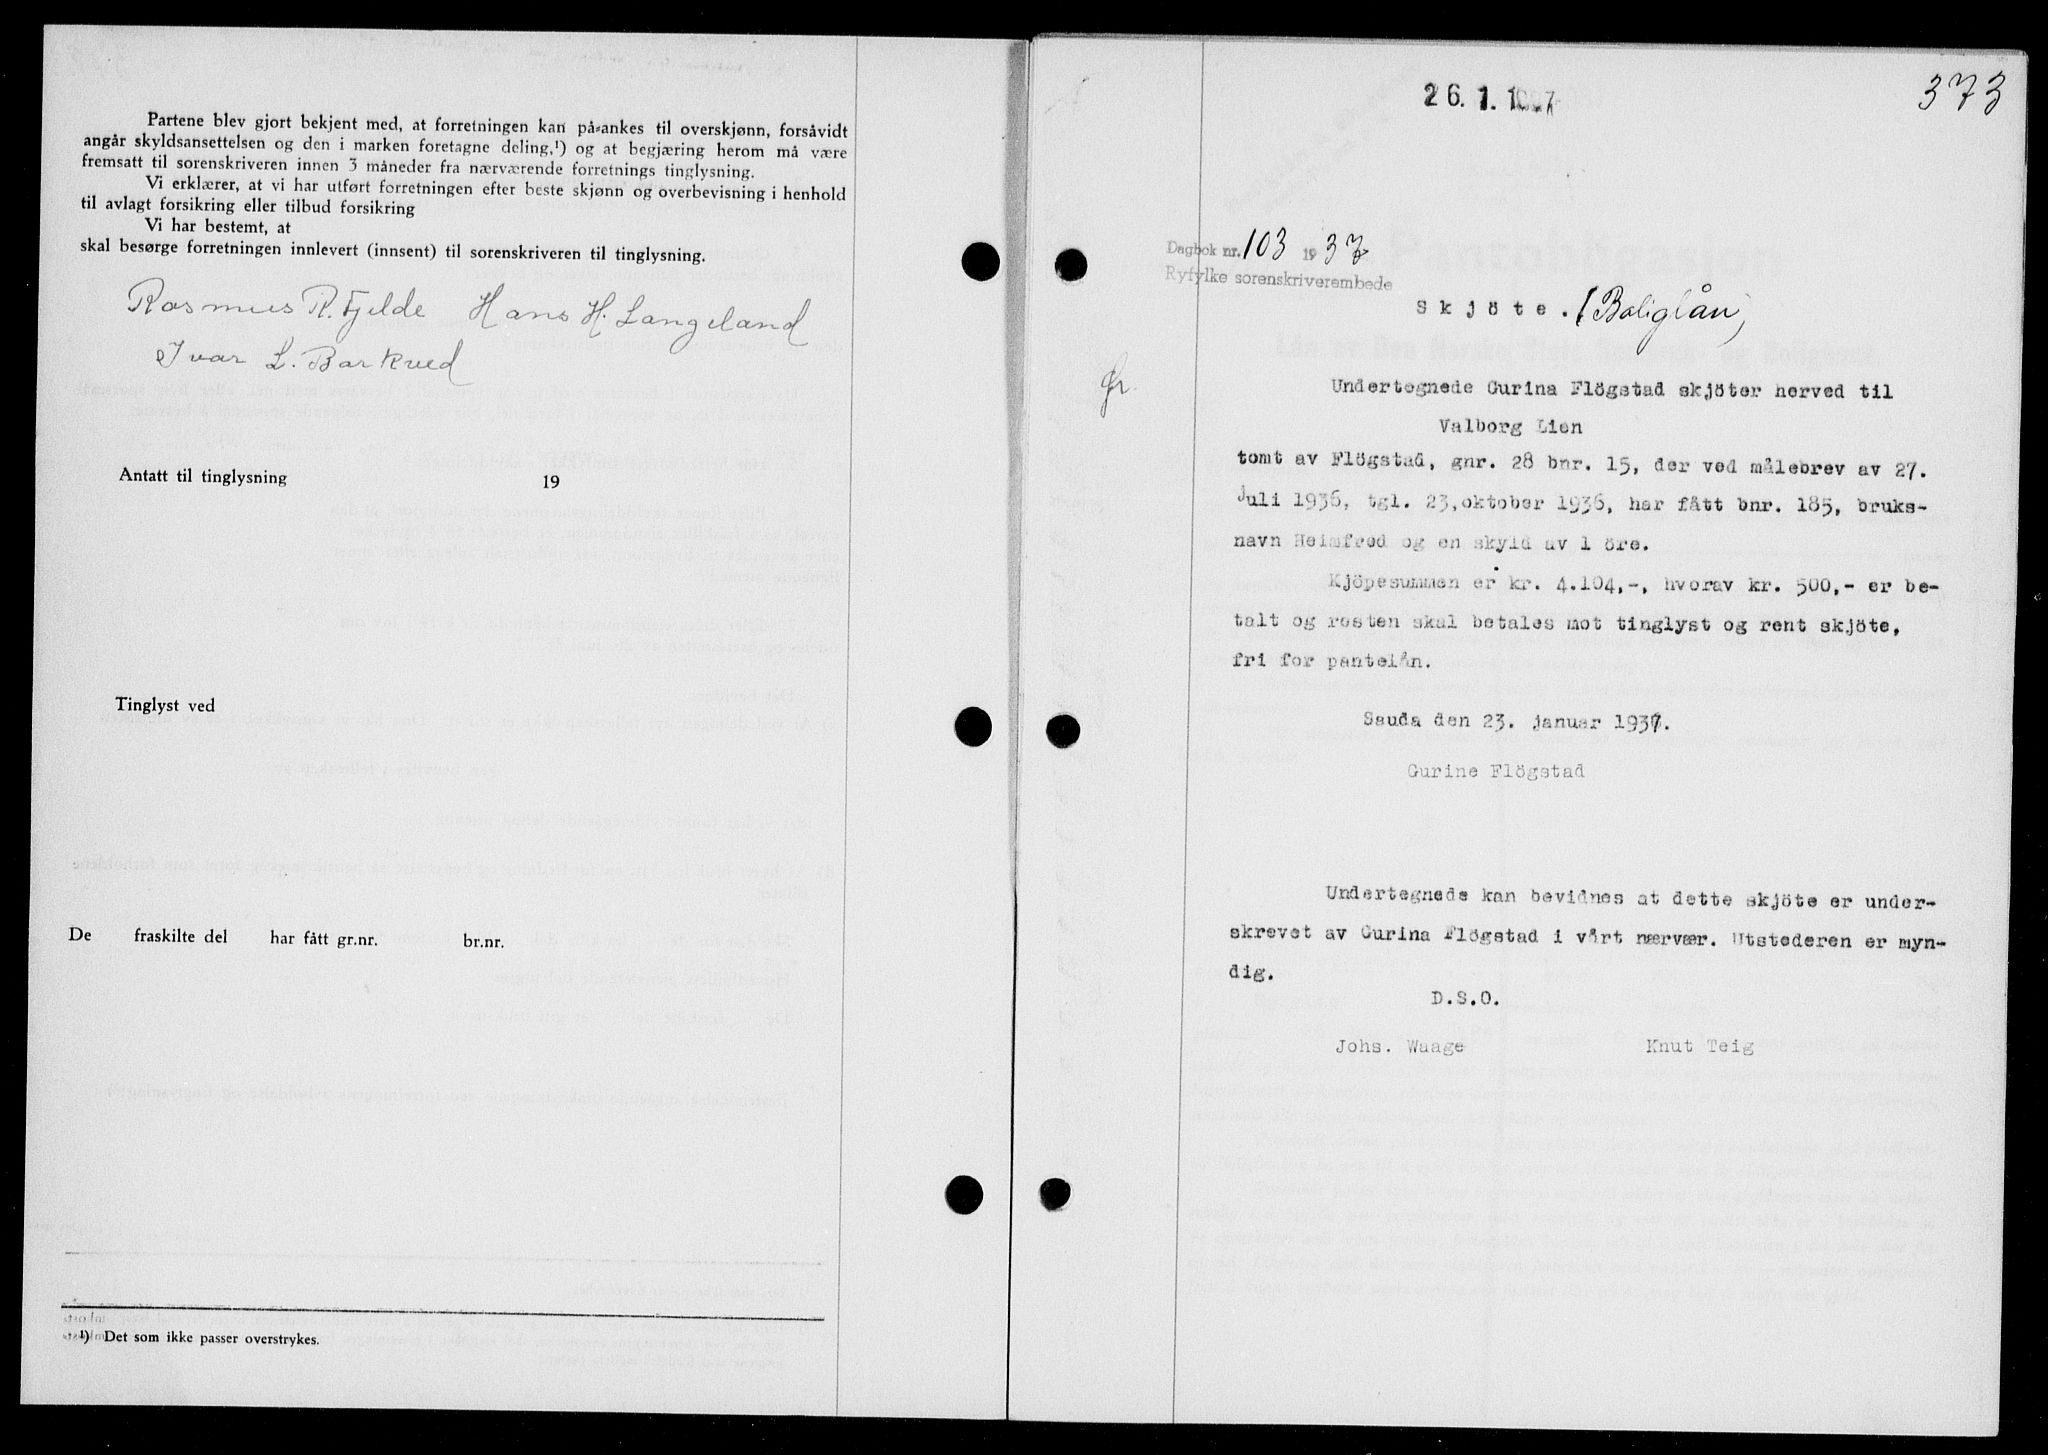 Partene blev gjort bekjent med, at forretningen kan på-ankes til overskjønn, forsåvidt
angår skyldsansettelsen og den i marken foretagne deling,¹) og at begjæring herom må være
fremsatt til sorenskriveren innen 3 måneder fra nærværende forretnings tinglysning.
Vi erklærer, at vi har utført forretningen efter beste skjønn og overbevisning i henhold
til avlagt forsikring eller tilbud forsikring
Vi har bestemt, at
skal besørge forretningen innlevert (innsent) til sorenskriveren til tinglysning.
Rasmus R. Fjelde Hans H. Langeland
Ivar L. Barkved
Antatt til tinglysning 19
Tinglyst ved
De fraskilte del har fått gr.nr. br.nr.
¹) Det som ikke passer overstrykes.
373
26. 1. 1937
Dagbok nr. 103 1937
Ryfylke sorenskriverembede
Skjöte. (Boliglån)
Undertegnede Gurina Flögstad skjöter herved til
Valborg Lien
tomt av Flögstad, gnr. 28 bnr. 15, der ved målebrev av 27.
juli 1936, tgl. 23, oktober 1936, har fått bnr. 185, bruks-
navn Heimfred og en skyld av 1 öre.
Kjöpesummen er kr. 4.104,-, hvorav kr. 500,- er be-
talt og resten skal betales mot tinglyst og rent skjöte,
fri for pantelån.
Sauda den 23. januar 1937.
Gurine Flögstad
Undertegnede kan bevidnes at dette skjöte er under-
skrevet av Gurina Flögstad i vårt nærvær. Utstederen er myn-
dig.
D.S.O.
Johs. Waage Knut Teig